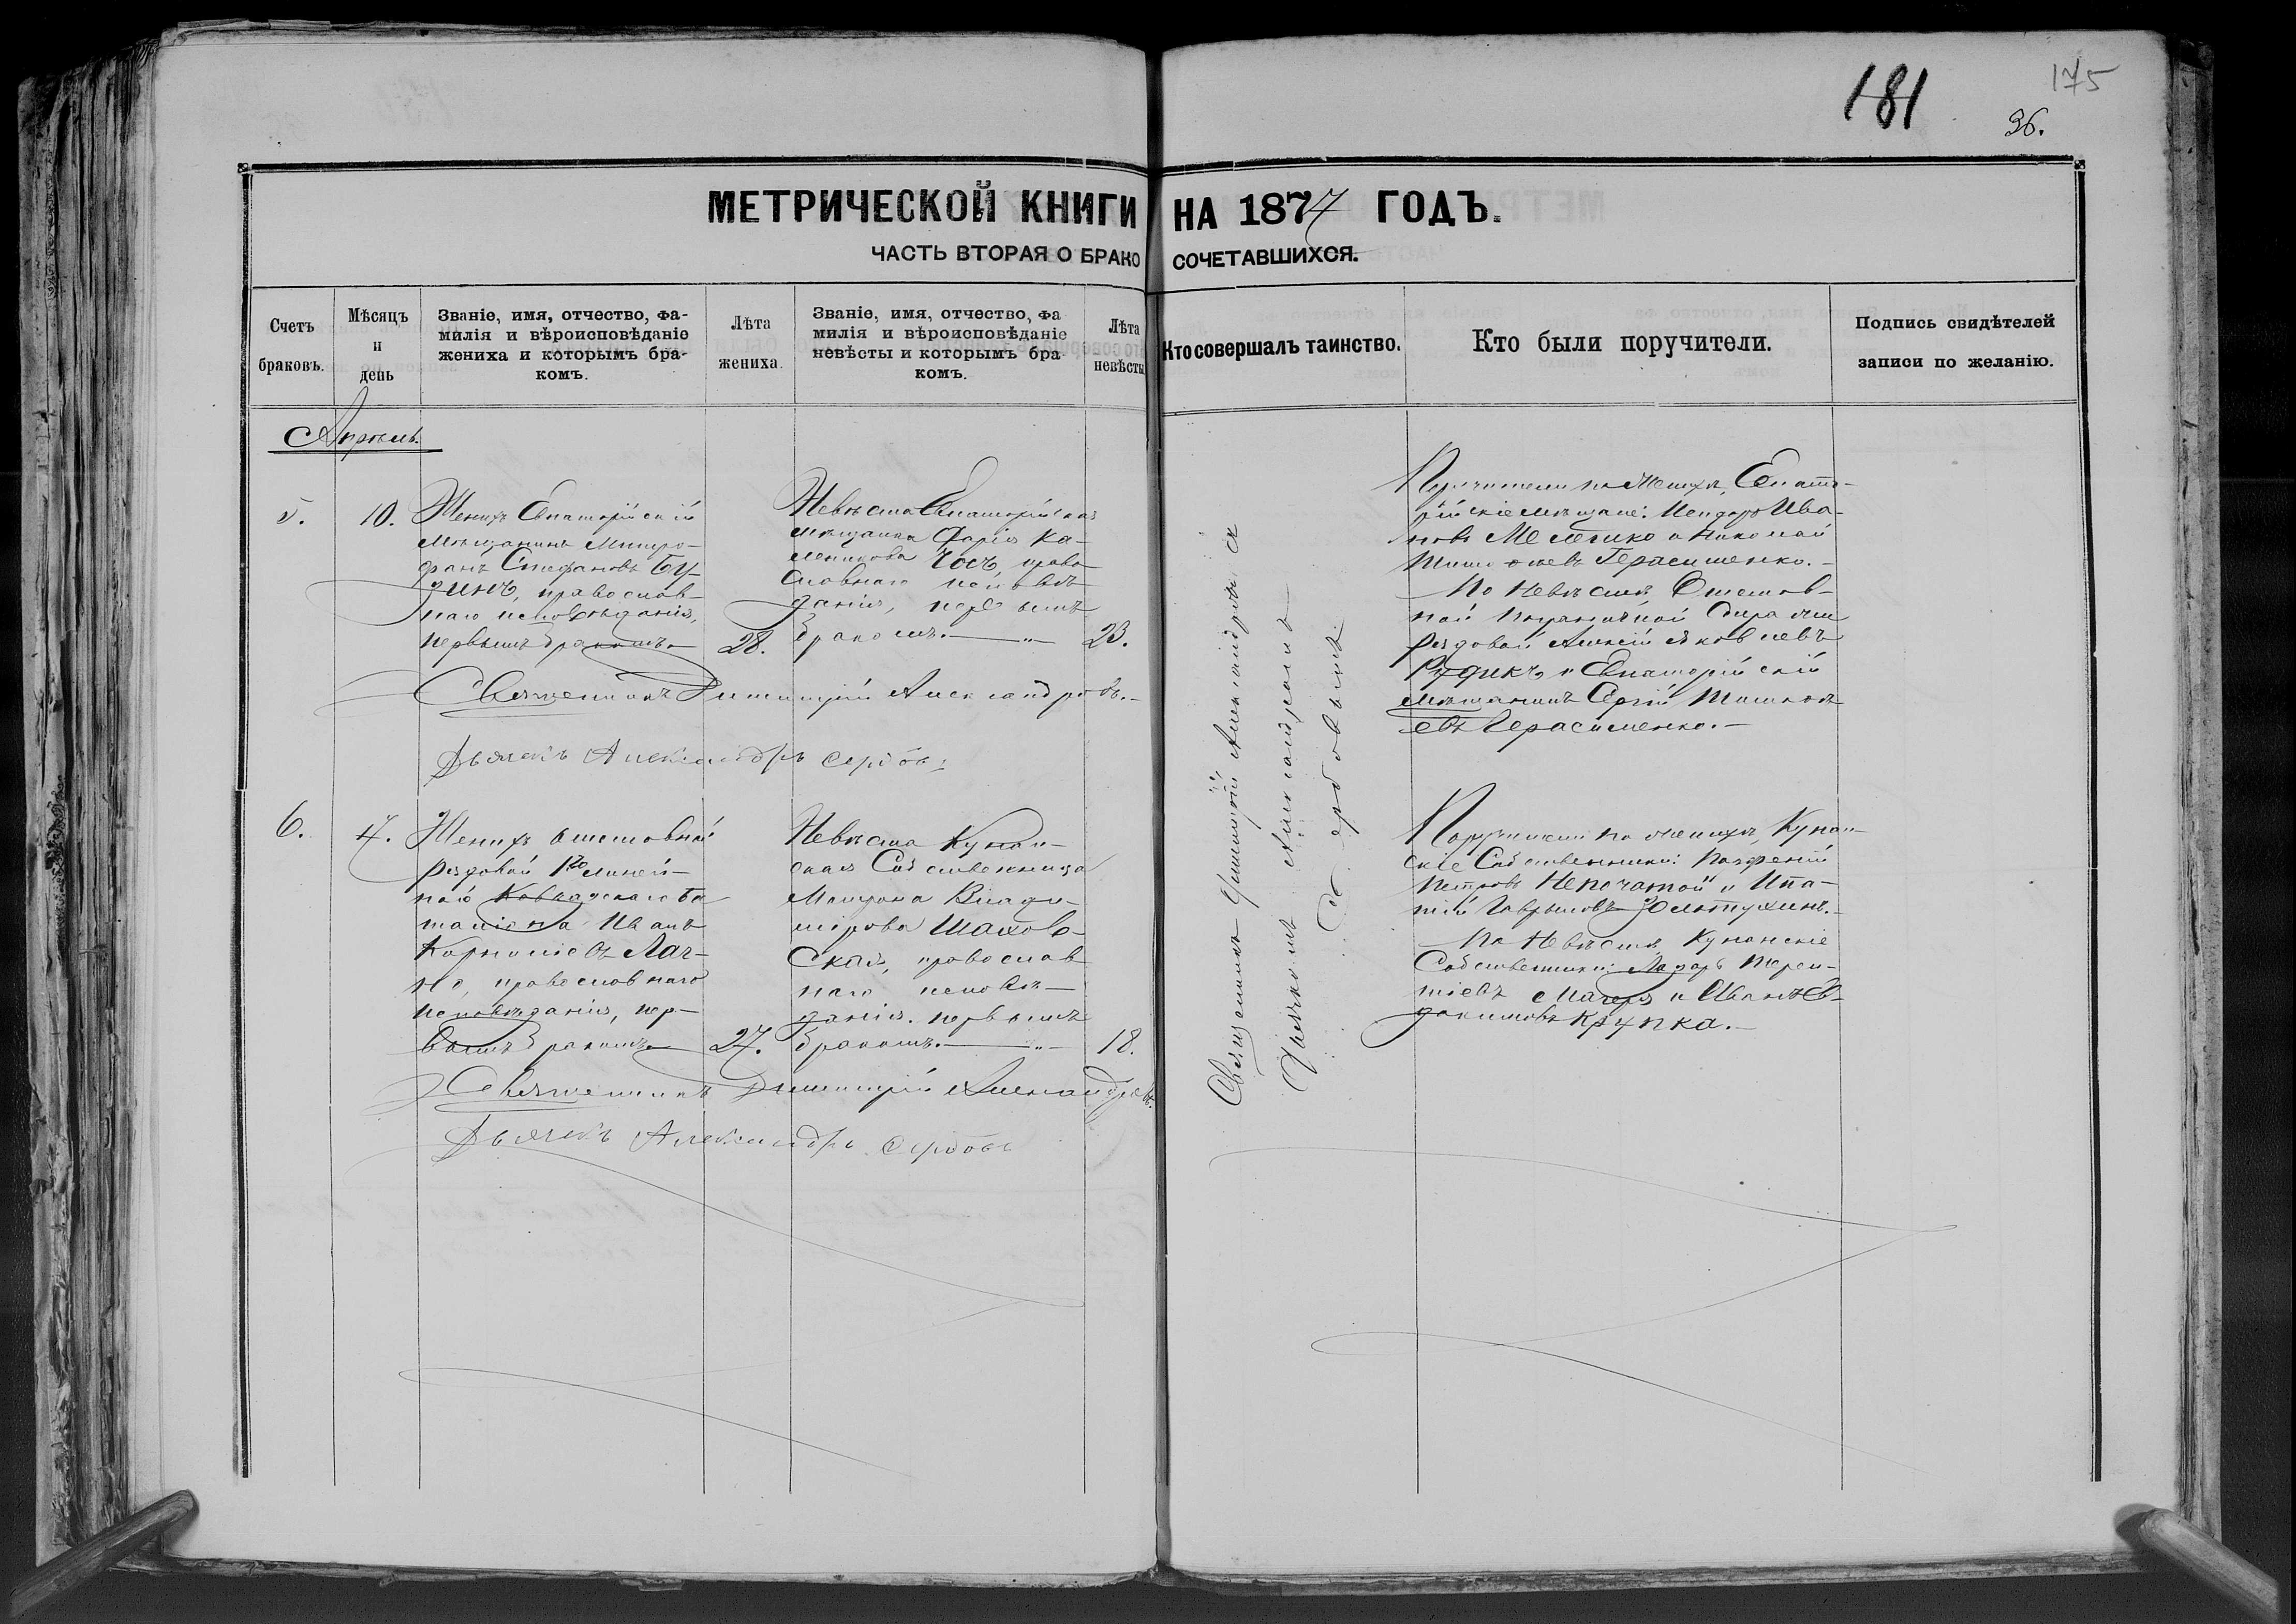 181
175
36.
МЕТРИЧЕСКОЙ КНИГИ НА 1877 ГОДЪ.
ЧАСТЬ ВТОРАЯ О БРАКОСОЧЕТАВШИХСЯ.
Счетъ
браковъ.
Мѣсяцъ
и
день
Званіе, имя, отчество, фа-
милія и вѣроисповѣданіе
жениха и которымъ бра-
комъ.
Лѣта
жениха.
Званіе, имя, отчество, фа
милія и вѣроисповѣданіе
невѣсты и которымъ бра-
комъ.
Лѣта
невѣсты
Кто совершалъ таинство.
Кто были поручители.
Подпись свидѣтелей
записи по желанію.
Апрѣль.
5.
10.
Женихъ Евпаторійскій
мѣщанинъ Митро-
фанъ Стефановъ Бу-
зинъ, православ-
наго исповѣданія,
первымъ бракомъ.
28.
Невѣста Евпаторійская
мѣщанка Дарія Ка-
ленникова Чосъ, право
славнаго исповѣ
данія, первымъ
бракомъ.
23.
Поручители по женихѣ, Евпато-
рійскіе мѣщане: Исидоръ Ива-
новъ Мелешко и Николай
Герасименко.
По Невѣстѣ, Отстав-
ной Пограничной Стражи
рядовой Алексій Яковлевъ
Рудикъ и Евпаторійскій
мѣщанинъ Сергій
евъ Герасименко.
Священникъ Димитрій Александровъ.
Дьячекъ Александръ Сербовъ
6.
Женихъ отставной
рядовой линей-
наго Кавказскаго ба
таліона Иванъ
Корниліевъ Лач-
но, православнаго
исповѣданія, пер-
вымъ бракомъ
27.
Невѣста Кунан-
ская Собственница
Матрона Влади-
мірова Шахов-
ская, православ
наго исповѣ-
данія. первымъ
бракомъ.
18.
Поручители по женихѣ, Кунан-
скіе Собственники: Парфеній
Петровъ Непочатой и Ипа-
тій Гавриловъ Золотухинъ.
По Невѣстѣ Кунанскіе
Собственники: Лазарь Терен-
тіевъ Мачеря и Иванъ Ев-
докимовъ Крупка.
Священникъ Димитрій Александровъ.
Дьячекъ Александръ Сербовъ
Священникъ Димитрій Александровъ съ
Дьячкомъ Александромъ
Сербовымъ.